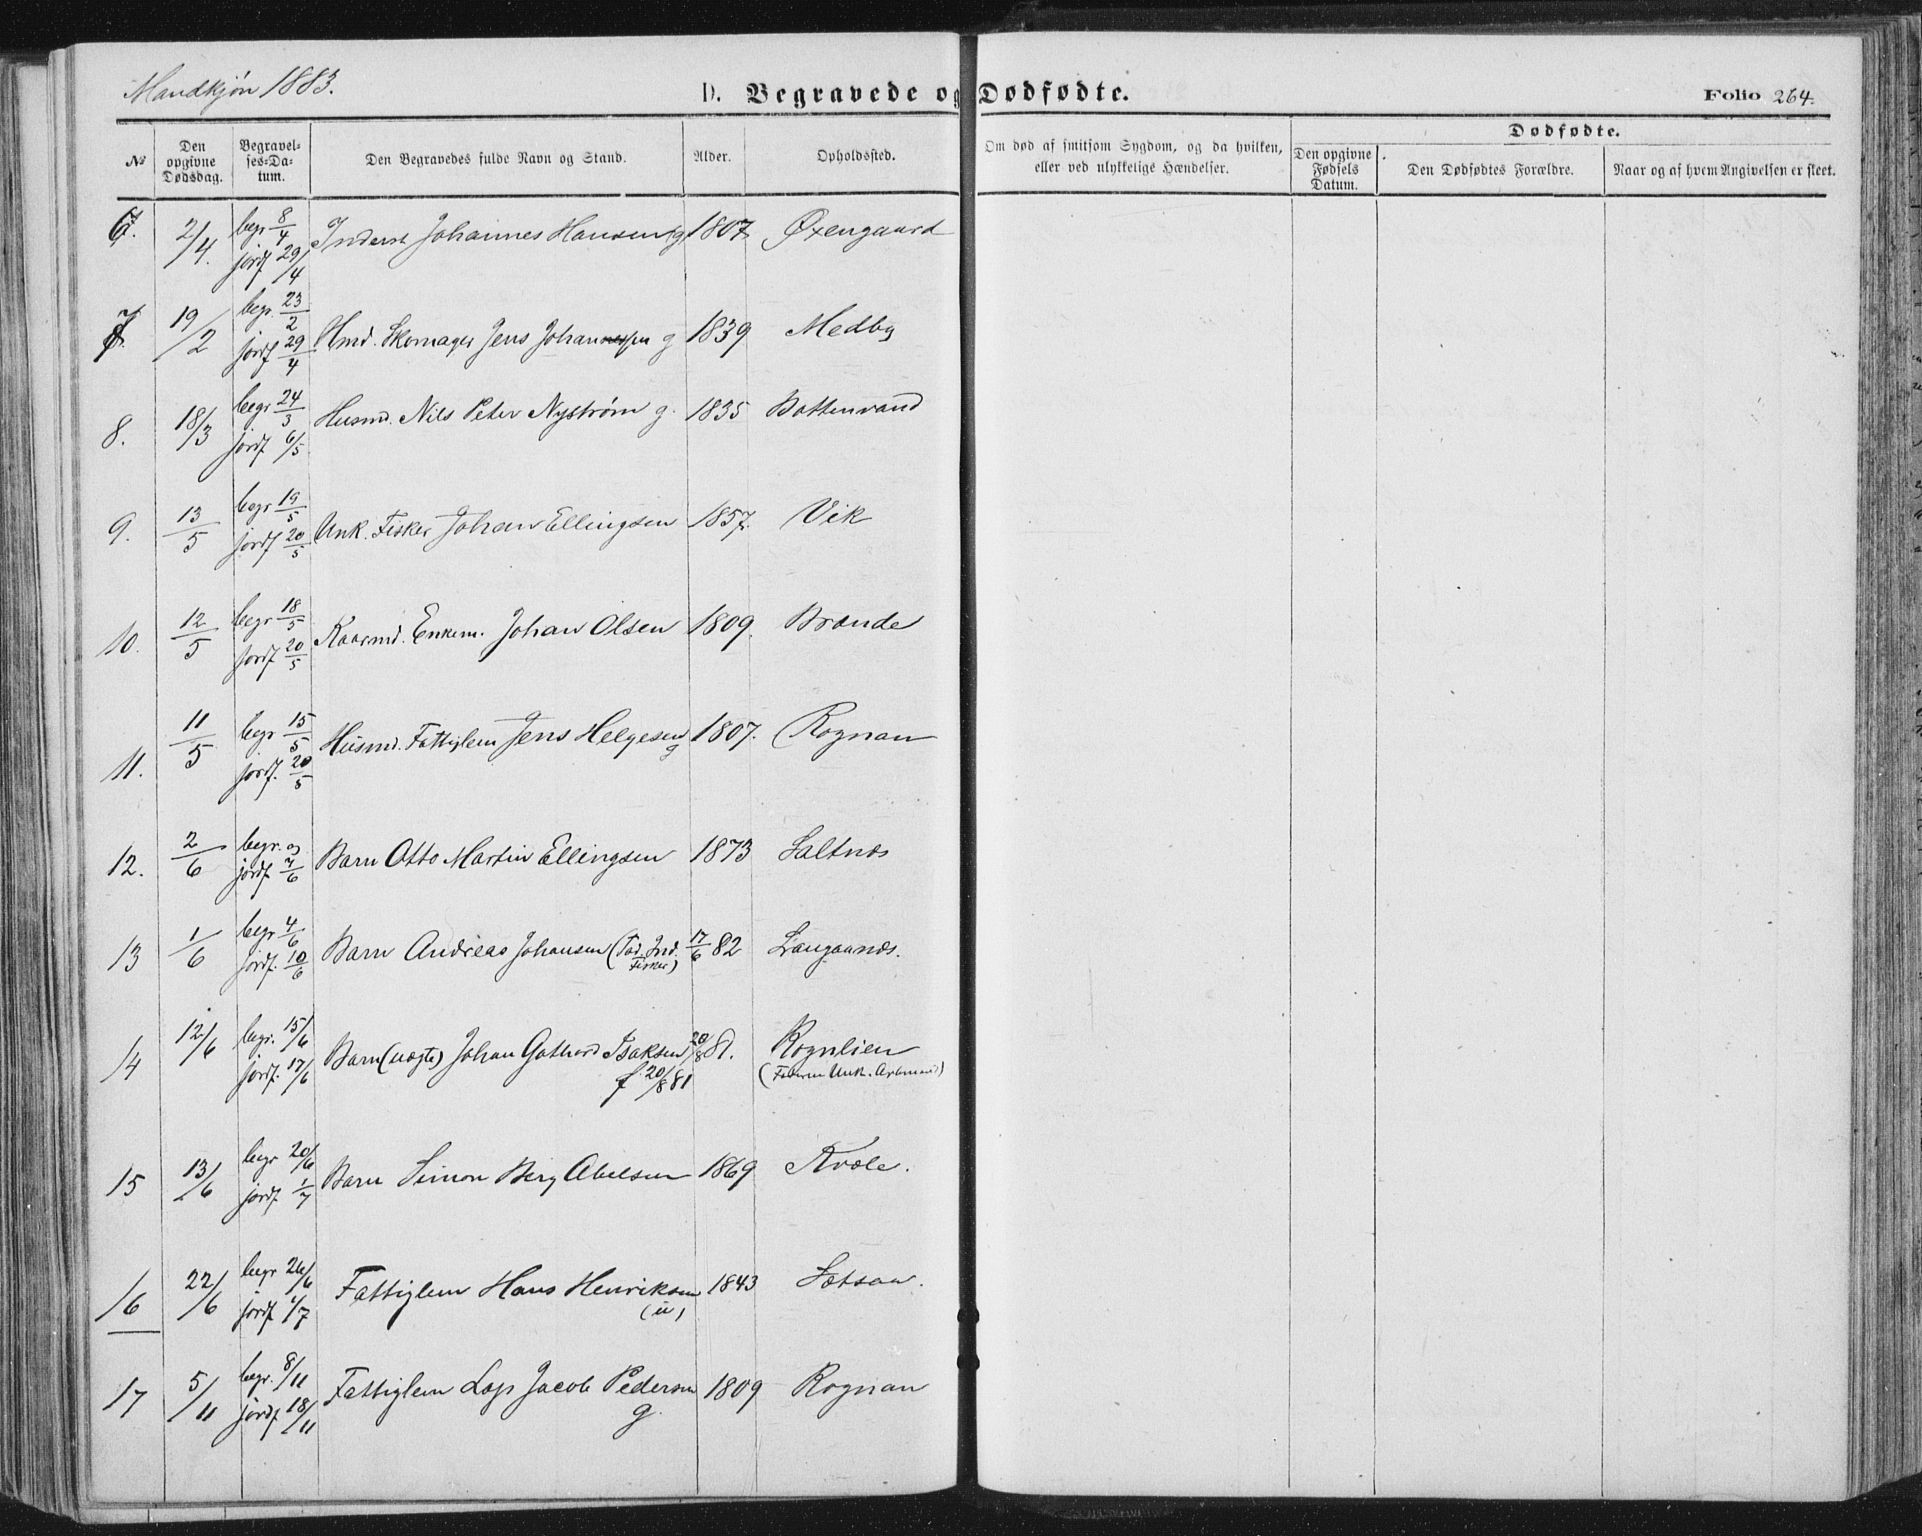 Mandkjön 1883.
D. Begravede og Dødfødte.
Folio 264.
No
Den opgivne Dødsdag.
Begravelses-Datum.
Den Begravedes fulde Navn og Stand.
Alder.
Opholdssted.
Om død af smitsom Sygdom, og da hvilken, eller ved ulykkelige Hændelser.
Dødfødte.
Den opgivne Fødsels Datum.
Den Dødfødtes Forældre.
Naar og af hvem Angivelsen er skeet.
6. 2/4. begr 8/4 jordf 29/4 Inderst Johannes Hansen g 1807 Øxengaard
7. 19/2 begr. 23/2 jordf 29/4 Hmd. Skomager Jens Johannessen g 1839 Medby
8. 18/3 begr 24/3 jordf 6/5 Husmd. Nils Peter Nyström g. 1835 Bottenvand
9. 13/5 begr 19/5 jordf 20/5 Unk. Fisker Johan Ellingsen 1857. Vik
10. 12/5 begr 18/5 jordf 20/5 Kaarmd. Enkem. Johan Olsen 1809. Brænde
11. 11/5 begr 15/5 jordf. 20/5 Husmd. Fattiglem Jens Helgesen g 1807. Rognan
12. 2/6 begr. og jordf 7/6 Barn Otto Martin Ellingsen 1873 Saltnæs
13 1/6 begr 4/6 jordf. 10/6 Barn Andreas Johansen (Fad. Ind. Fisker) 17/6 82 Langaanæs.
14 12/6 begr. 15/6 jordf. 17/6 Barn (uægte) Johan Gothard Isaksen 20/8 81. Rognlien
f. 20/8 81 (Faderen Unk. Arbmand)
15 13/6 begr 20/6 jordf. 1/7 Barn Simon Berg Abelsen 1869 Kvæle.
16 22/6 begr 26/6 jordf 1/7 Fattiglem Hans Henriksen (u) 1843 Sætsaa.
17 5/11 begr. 8/11 jordf 18/11 Fattiglem Lap Jacob Pedersen g. 1809 Rognan